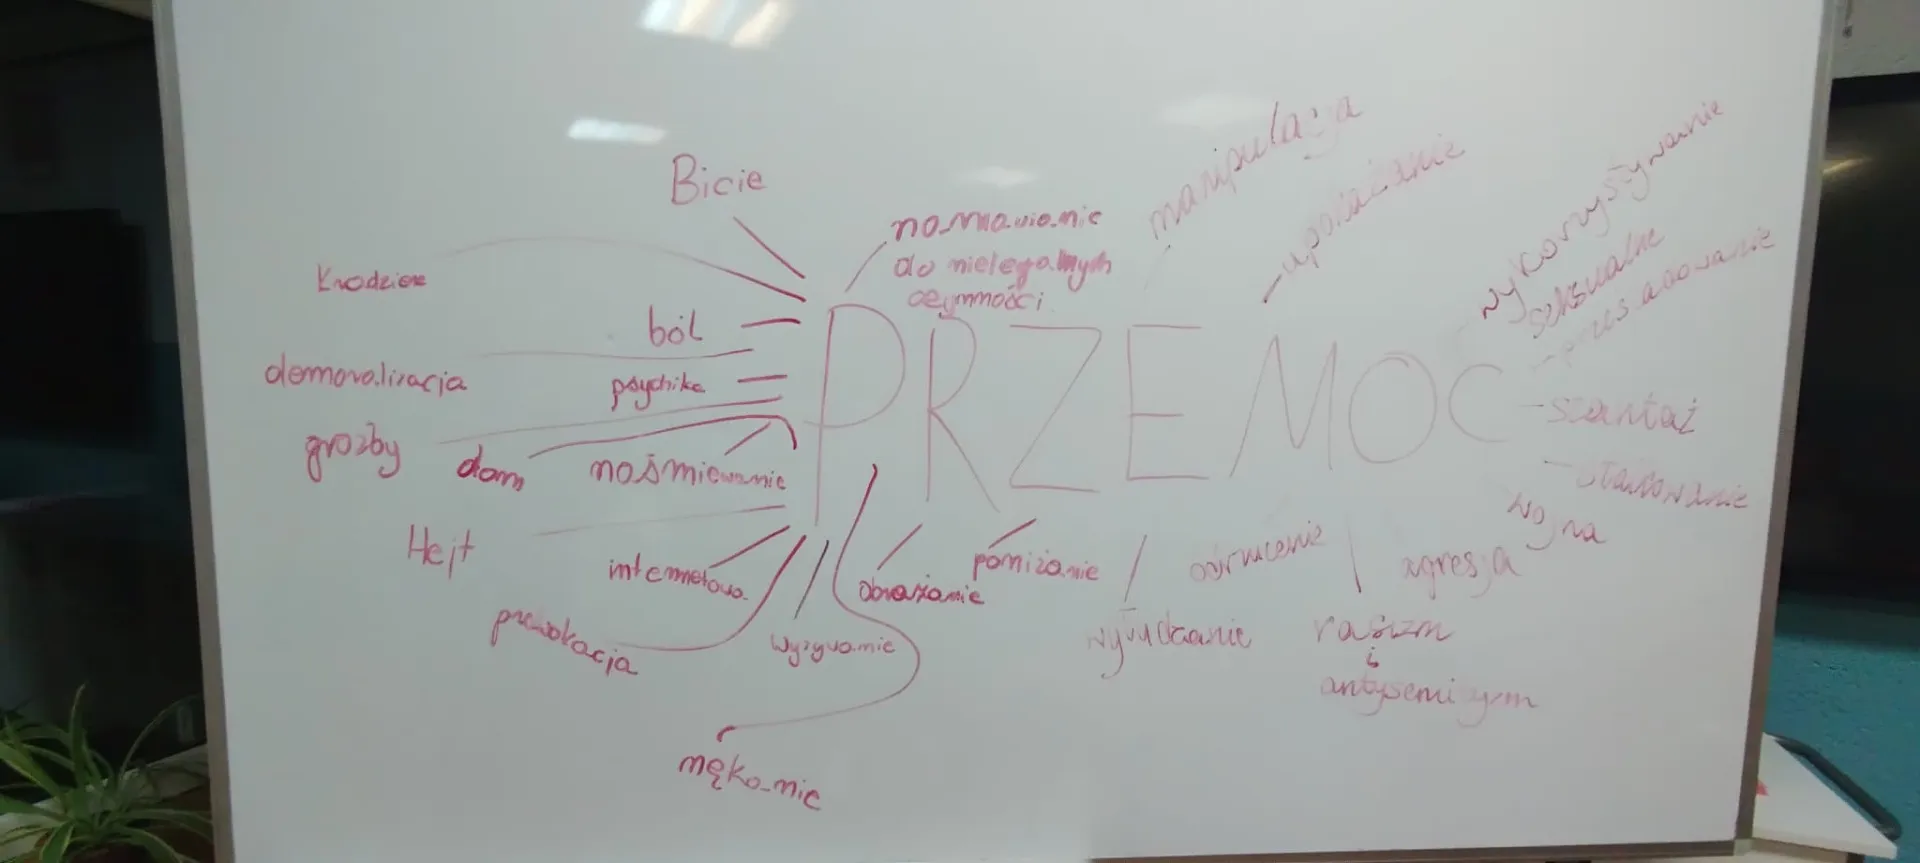 Bicie
manipulacja
upokarzanie
wykorzystywanie
seksualne
namawianie
do nielegalnych
czynności
ból
demoralizacja
psychika
PRZEMOC
szantaż
groźby
dom
naśmiewanie
wojna
Hejt
internetowa
obrażanie
poniżanie
odrzucenie
agresja
prowokacja
wyzywanie
rasizm
i
antysemityzm
nękanie